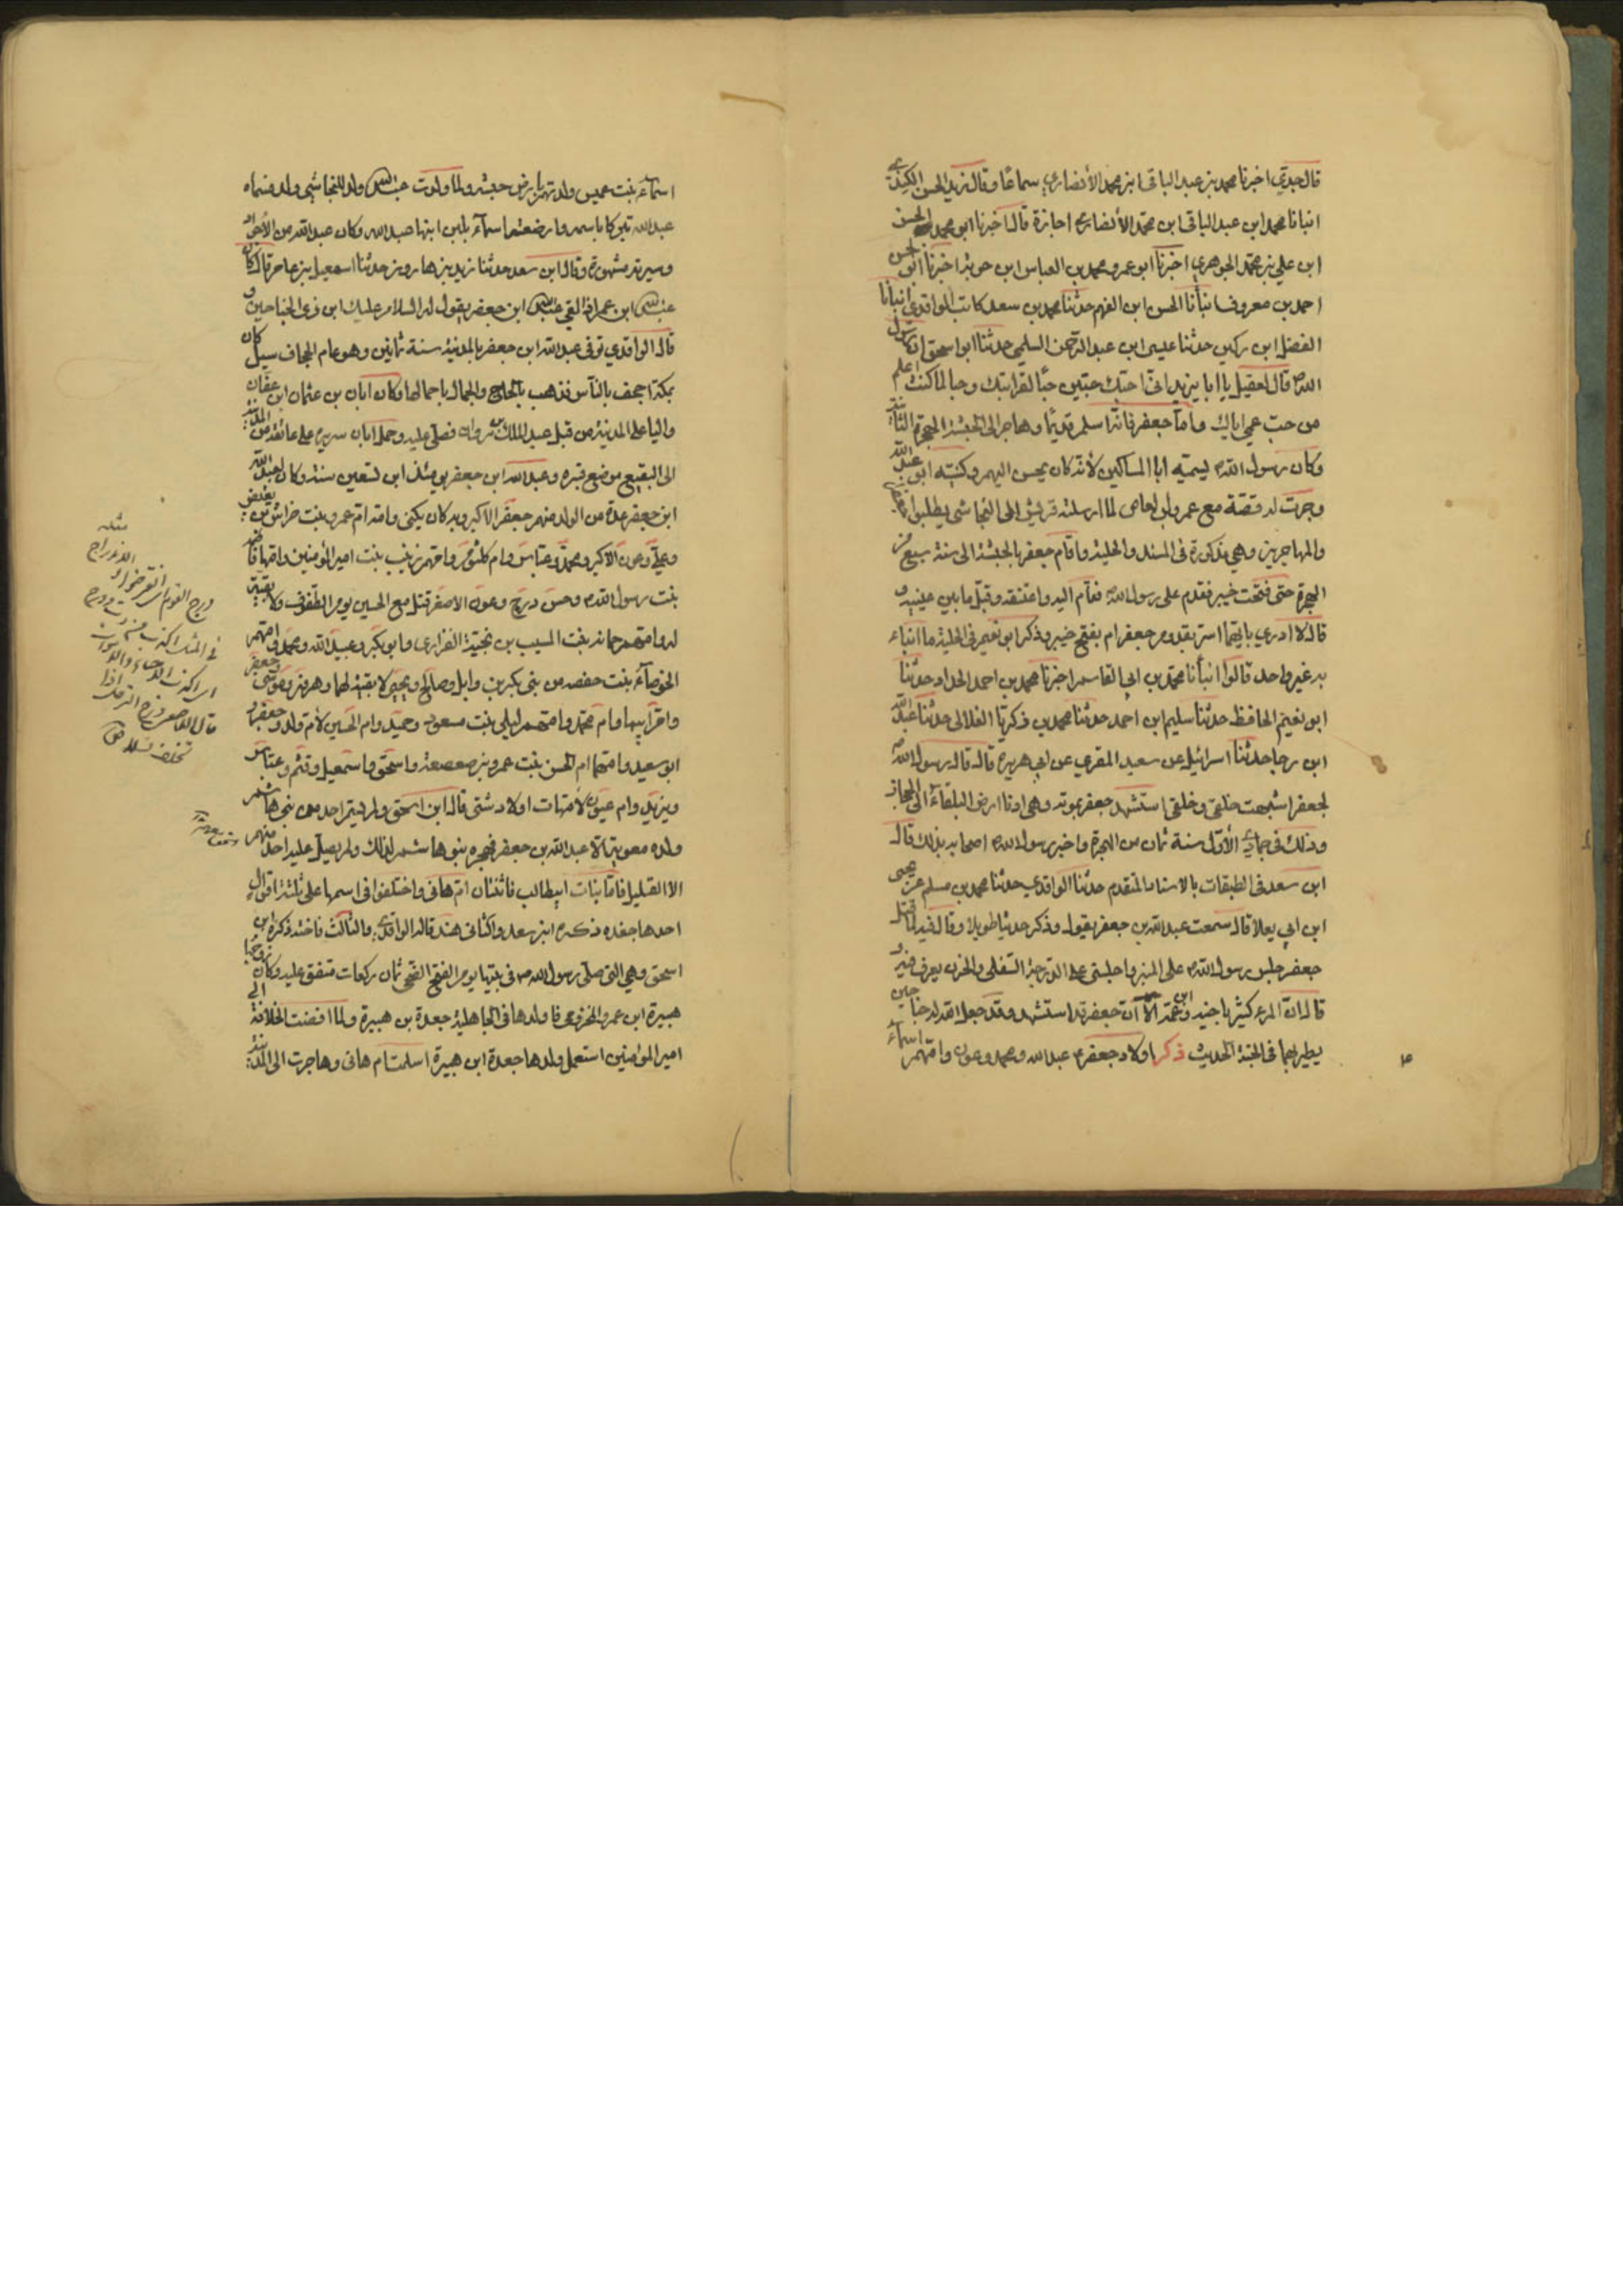 قال جدي اخبرنا محمد بن عبد الباقي ابن محمد الأنصاري سماعًا وقال زيد الحسن الكندي
انبانا محمد ابن عبد الباقي ابن محمد الأنصاري اجازة قال اخبرنا ابو محمد الحسن
ابن علي بن محمد الجوهري اخبرنا ابو عمرو محمد بن العباس ابن حويه اخبرنا ابو الحسن
احمد بن معروف انبأنا الحسن ابن الفهم حدثنا محمد بن سعد كاتب الواقدي انبانا
الفضل ابن ركين حدثنا عيسى ابن عبد الرحمن السلمي حدثنا ابو اسحق ان رسول
الله ص قال لعقيل يا ابا يزيد اني احبك حبين حبًا لقرابتك وحبا لما كنت اعلم
من حب عمي اياك واما جعفر فانه اسلم قديمًا وهاجر الى الحبشة الهجرة الثانية
وكان رسول الله ص يسميه ابا المساكين لانه كان يحسن اليهم وكنيته ابو عبد الله
وجرت له قصة مع عمرو ابن العاص لما ارسلته قريش الى النجاشي يطلبوا
والمهاجرين وهي مذكورة في المسند والحلية واقام جعفر بالحبشة الى سنة سبع من
الهجرة حتى فتحت خيبر فقدم على رسول الله ص فقام اليه واعتنقه وقبل ما بين عينيه و
قال لا ادري بايهما اسر بقدوم جعفر ام بفتح خيبر وذكر ابو نعيم في الحلية ما انباء
به غير واحد قالوا انبأنا محمد بن ابي القاسم اخبرنا محمد بن احمد الحداد حدثنا
ابو نعيم الحافظ حدثنا سليم ابن احمد حدثنا محمد بن زكريا الغلالي حدثنا عبد الله
ابن رجا حدثنا اسرائيل عن سعيد المقري عن ابي هريرة قال قال رسول الله ص
لجعفر اشبهت خلقي وخلقي استشهد جعفر بموته وهي ادنا ارض البلقاء الى الحجاز
وذلك في جمادي الأول سنة ثمان من الهجرة واخبر رسول الله ص اصحابه بذلك قال
ابن سعد في الطبقات بالاسناد المتقدم حدثنا الواقدي حدثنا محمد بن مسلم عن يحيى
ابن ابي يعلا قال سمعت عبد الله بن جعفر يقول وذكر حديثا طويلا وقال فيه لما قتل
جعفر جلس رسول الله ص على المنبر واجلسني على الدرجة السفلى والحزن يعرف فيه و
قال ان المرء كثير باخيه وابن عمه الا ان جعفر قد استشهد وقد جعل الله له جناحين
يطير بهما في الجنة الحديث ذكر اولاد جعفر ع عبد الله ومحمد وعون وامهم اسماء
اسماء بنت عميس ولدتهم بارض حبشة ولما ولدت عبد الله ولد للنجاشي ولد فسماه
عبد الله تبركا باسمه وارضعته اسماء بلبن ابنها عبد الله وكان عبد الله من الأجواد
وسيرته مشهورة وقال ابن سعد حدثنا زيد بن هارون حدثنا اسمعيل بن عامر قال كان
عبد الله ابن عمر اذا لقي عبد الله ابن جعفر يقول له السلام عليك ابن ذي الجناحين و
قال الواقدي توفي عبد الله ابن جعفر بالمدينة سنة ثمانين وهو عام الجحاف سيل كان
بمكة اجحف بالناس فذهب بالحاج والجمال باحمالها وكان ابان بن عثمان ابن عفان
واليا على المدينة من قبل عبد الملك بن مروان فصلى عليه وحمل ابان سريره على عاتقه من المدينة
الى البقيع موضع قبره وعبد الله ابن جعفر يومئذ ابن تسعين سنة وكان لعبد الله
ابن جعفر عدة من الولد منهم جعفر الاكبر وبه كان يكنى وامه ام عمرو بنت خراش من
وعلي وعون الاكبر ومحمد وعباس وام كلثوم وامهم زينب بنت امير المؤمنين وامها فاطمة
بنت رسول الله ص وحسن درج وعون الاصغر قتل مع الحسين يوم الطفوف ولا بقية
له وامهم جمانة بنت المسيب بن نجبة الفزاري وابو بكر وعبيد الله ومحمد وامهم
الخوصاء بنت حفصه من بني بكر بن وايل وصالح ويحيى لا بقية لهما وهرون وموسى وجعفر
وام ابيها وام محمد وامهم ليلى بنت مسعود وحميد وام الحسين لأم ولد وجعفر و
ابو سعيد وامهما ام الحسن بنت عمرو بن صعصعة واسحق واسمعيل وقثم وعباس
ويزيد وام عون لأمهات اولاد شتى قال ابن اسحق ولم يسم احد من بني هاشم
ولده معوية الا عبد الله بن جعفر فهجره بنو هاشم لذلك ولم يصل عليه احد منهم
الا القليل فاما بنات ابيطالب فاثنتان ام هاني واختلفوا في اسمها على ثلثة اقوال
احدها جعده ذكره ابن سعد والثاني هند قاله الواقدي والثالث فاخته ذكره ابن
اسحق وهي التي صلى رسول الله ص في بيتها يوم الفتح الضحى ثمان ركعات متفق عليه وكان زوجها
هبيرة ابن عمرو المخزومي فاولدها في الجاهلية جعدة بن هبيرة ولما افضت الخلافة الى
امير المؤمنين استعمل ولدها جعدة ابن هبيرة اسلمت ام هاني وهاجرت الى المدينة
مثله
الاندراج
درج القوم انقرضوا
في المثل اكذب من دب ودرج
اي اكذب الاحياء والاموات
قال الاصمعي درج الرجل اذا